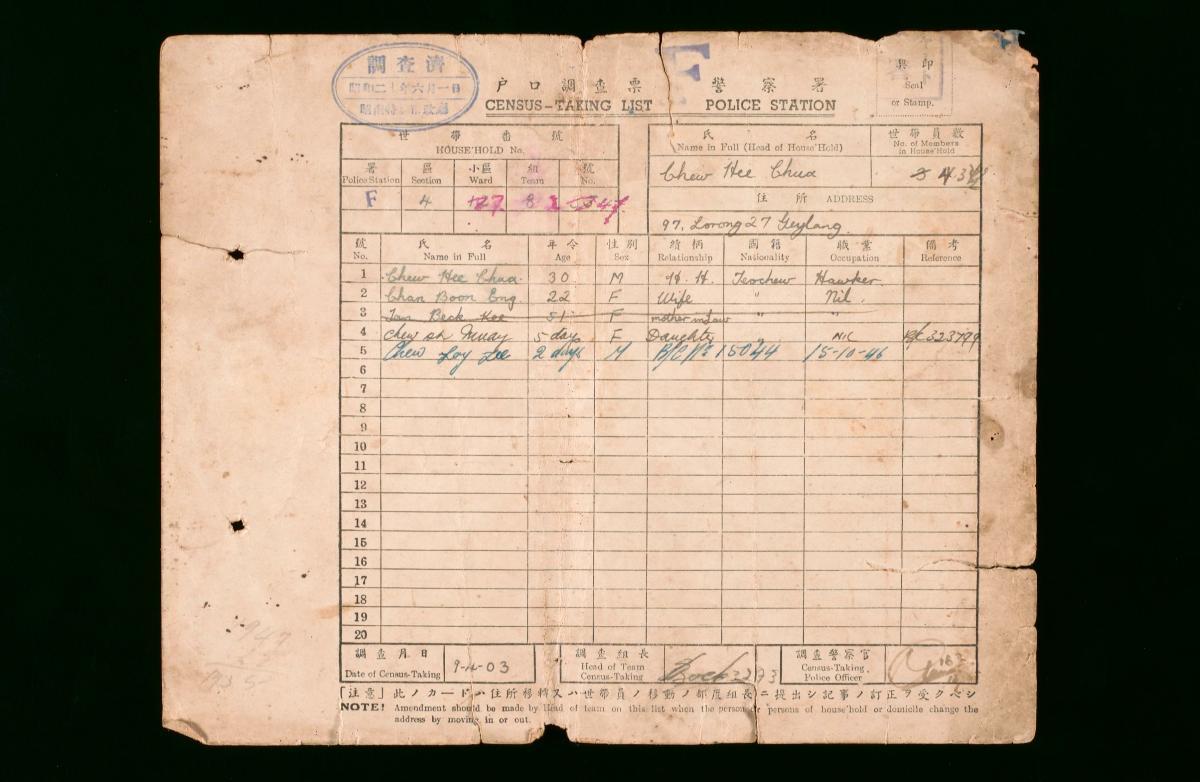 調查濟
昭和二十年六月一日
戸口調查票 警察署
CENSUS-TAKING LIST POLICE STATION
F
印
Seal
or Stamp.
世帶番號
HOUSE'HOLD No.
署 區 小區 組 號
Police Station Section Ward Team No.
F 4
氏名 世帶員數
Name in Full (Head of House'Hold) No. of Members in House'Hold
Chew Hee Chua
住所 ADDRESS
97, Lorong 27 Geylang.
號 氏名 年令 性別 續柄 國籍 職業 備考
No. Name in Full Age Sex Relationship Nationality Occupation Reference
1 Chew Hee Chua 30 M H. H. Teochew Hawker.
2 Chan Boon Eng. 22 F Wife " Nil.
3 Tan Beck Kee 51 F mother in law " "
4 Chew Muay 5 days F Daughter NIL 323799
5 Chew Loy 2 days M B/C No 15044 15-10-46
6
7
8
9
10
11
12
13
14
15
16
17
18
19
20
調查月日 調查組長 調查警察官
Date of Census-Taking 9-4-03 Head of Team Census-Taking Census-Taking Police Officer
「注意」此ノカードハ住所移轉又ハ世帶員ノ移動ノ都度組長ニ提出シ記事ノ訂正ヲ受クベシ
NOTE! Amendment should be made by Head of team on this list when the person or persons of house'hold or domicile change the
address by moving in or out.